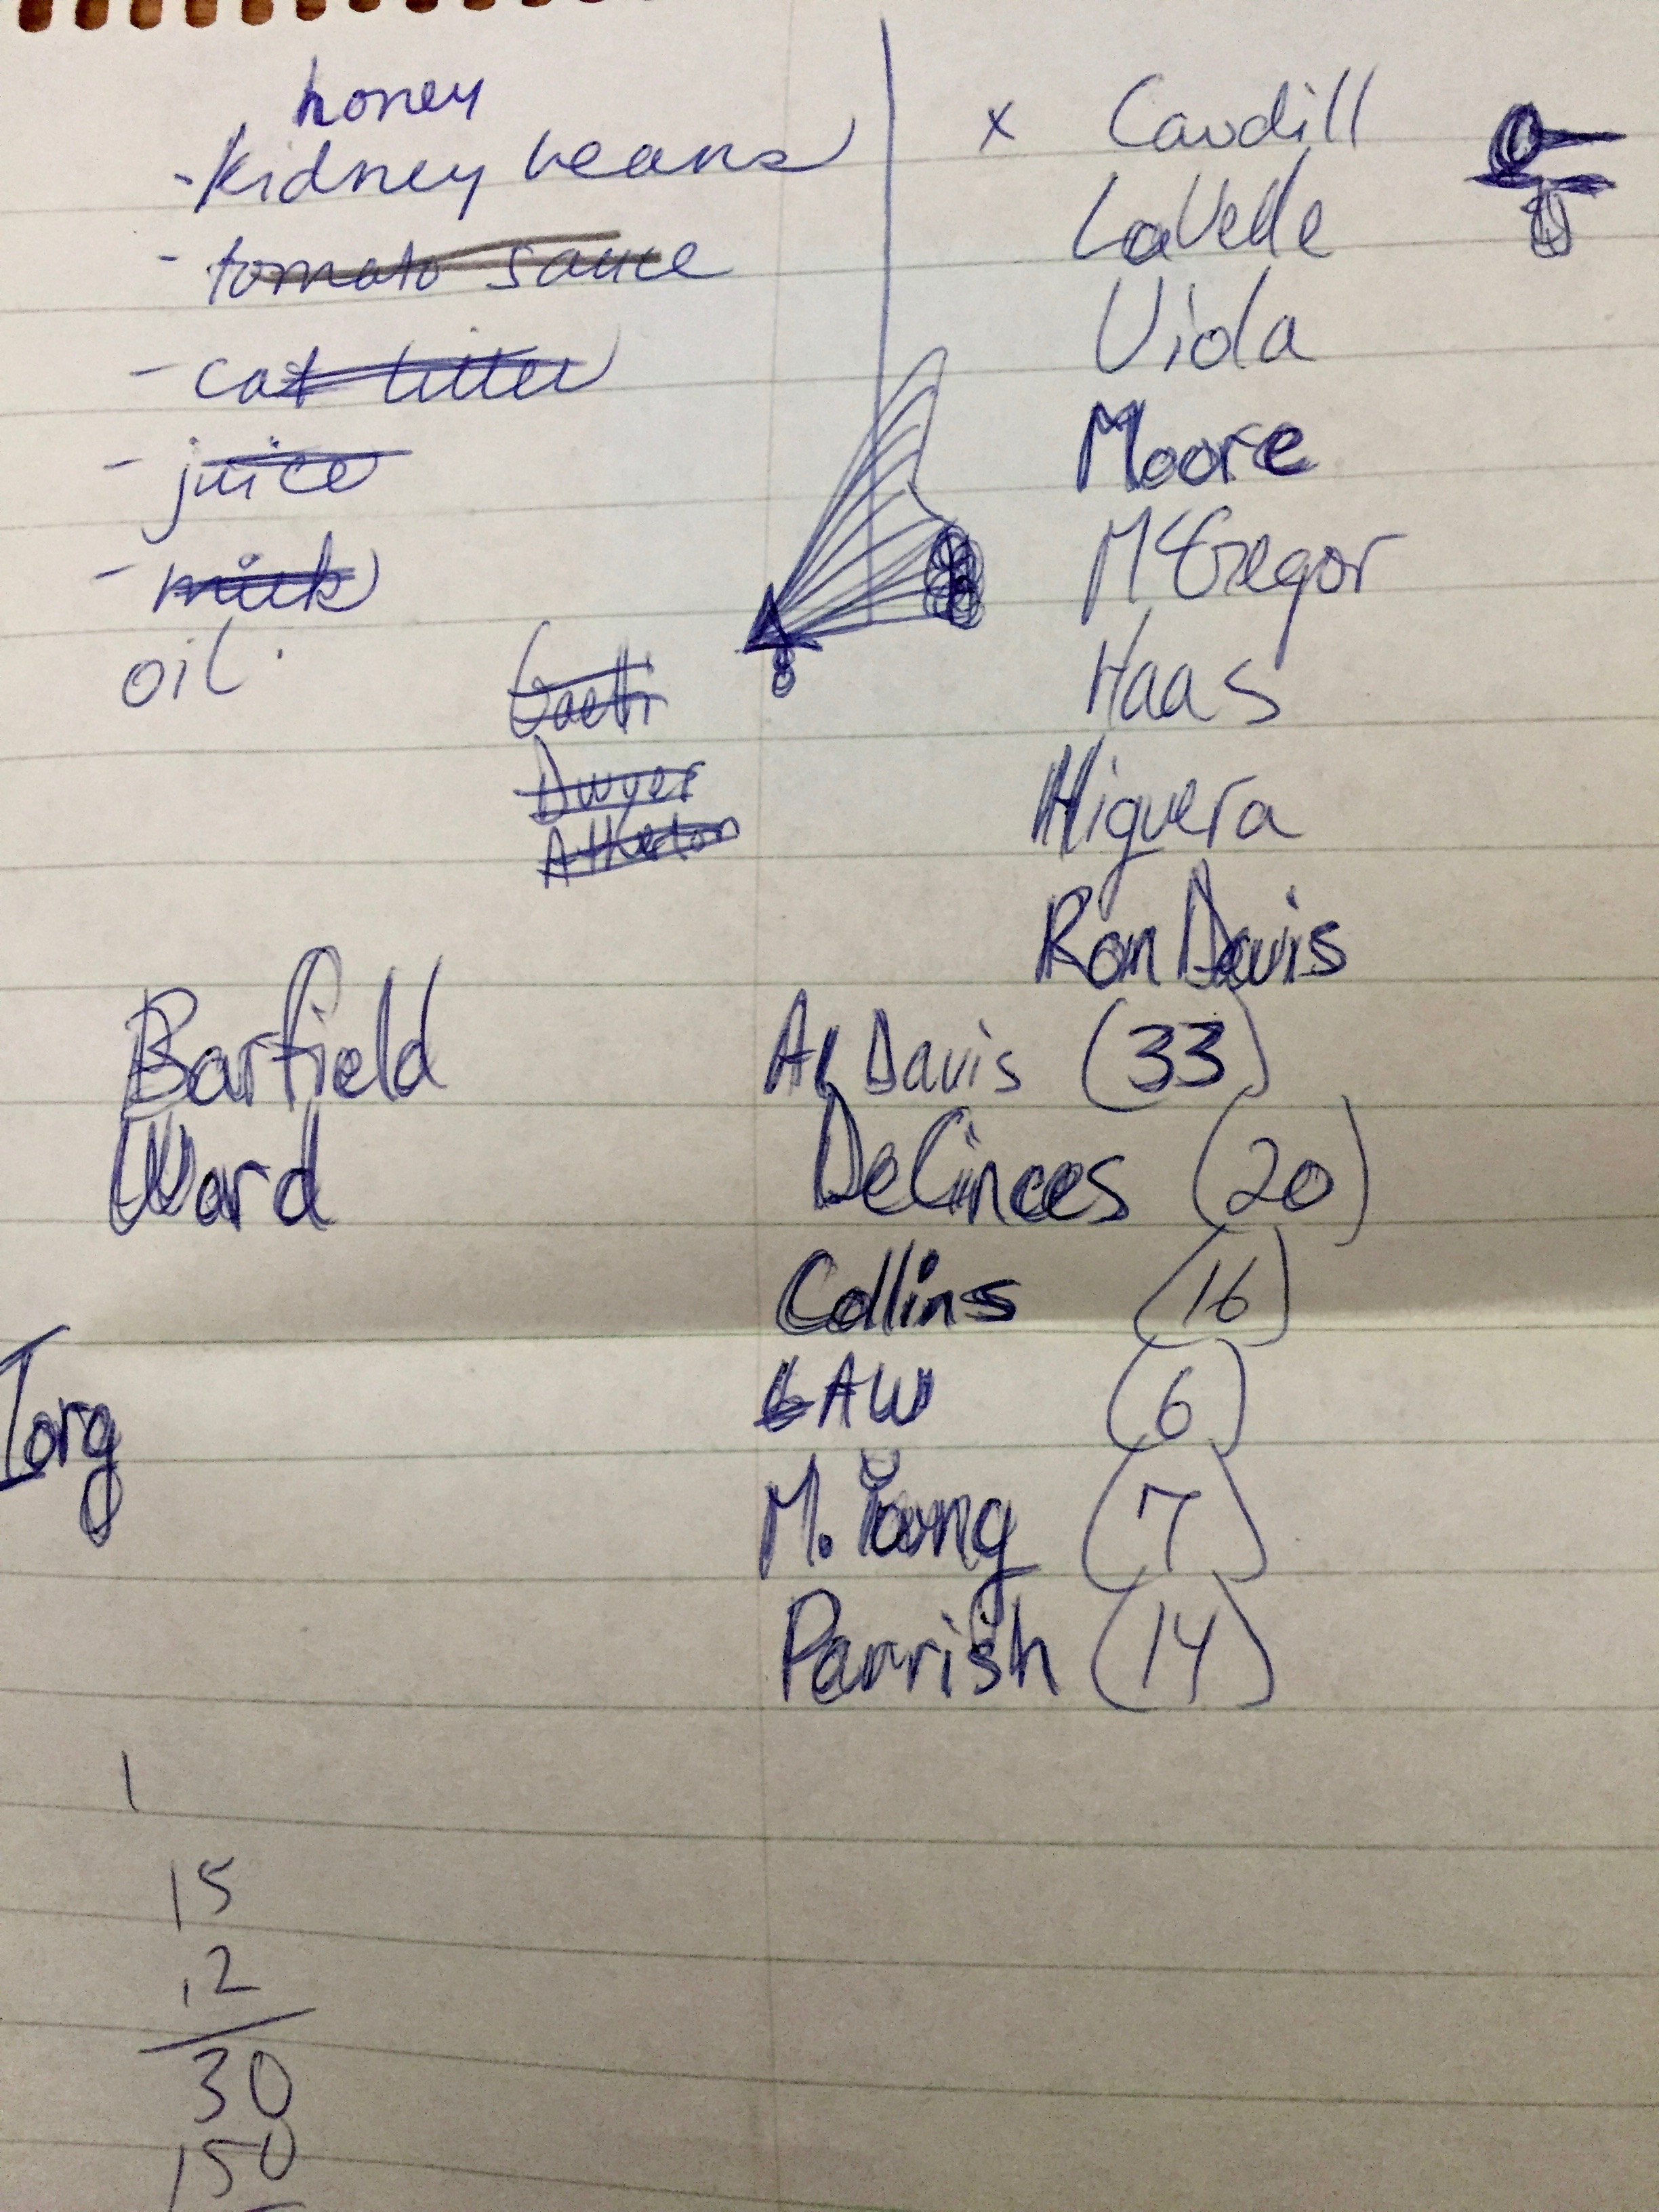 honey
- kidney beans
- tomato sauce
- cat litter
- juice
- milk
oil
x Caudill
LaVelle
Viola
Moore
McGregor
Haas
Higuera
Ron Davis
Gaetti
Dwyer
Atherton
Barfield
Ward
Al Davis (33)
DeCinces (20)
Collins (16)
LAW (6)
M. Young (7)
Parrish (14)
Torg
1
15
12
30
150